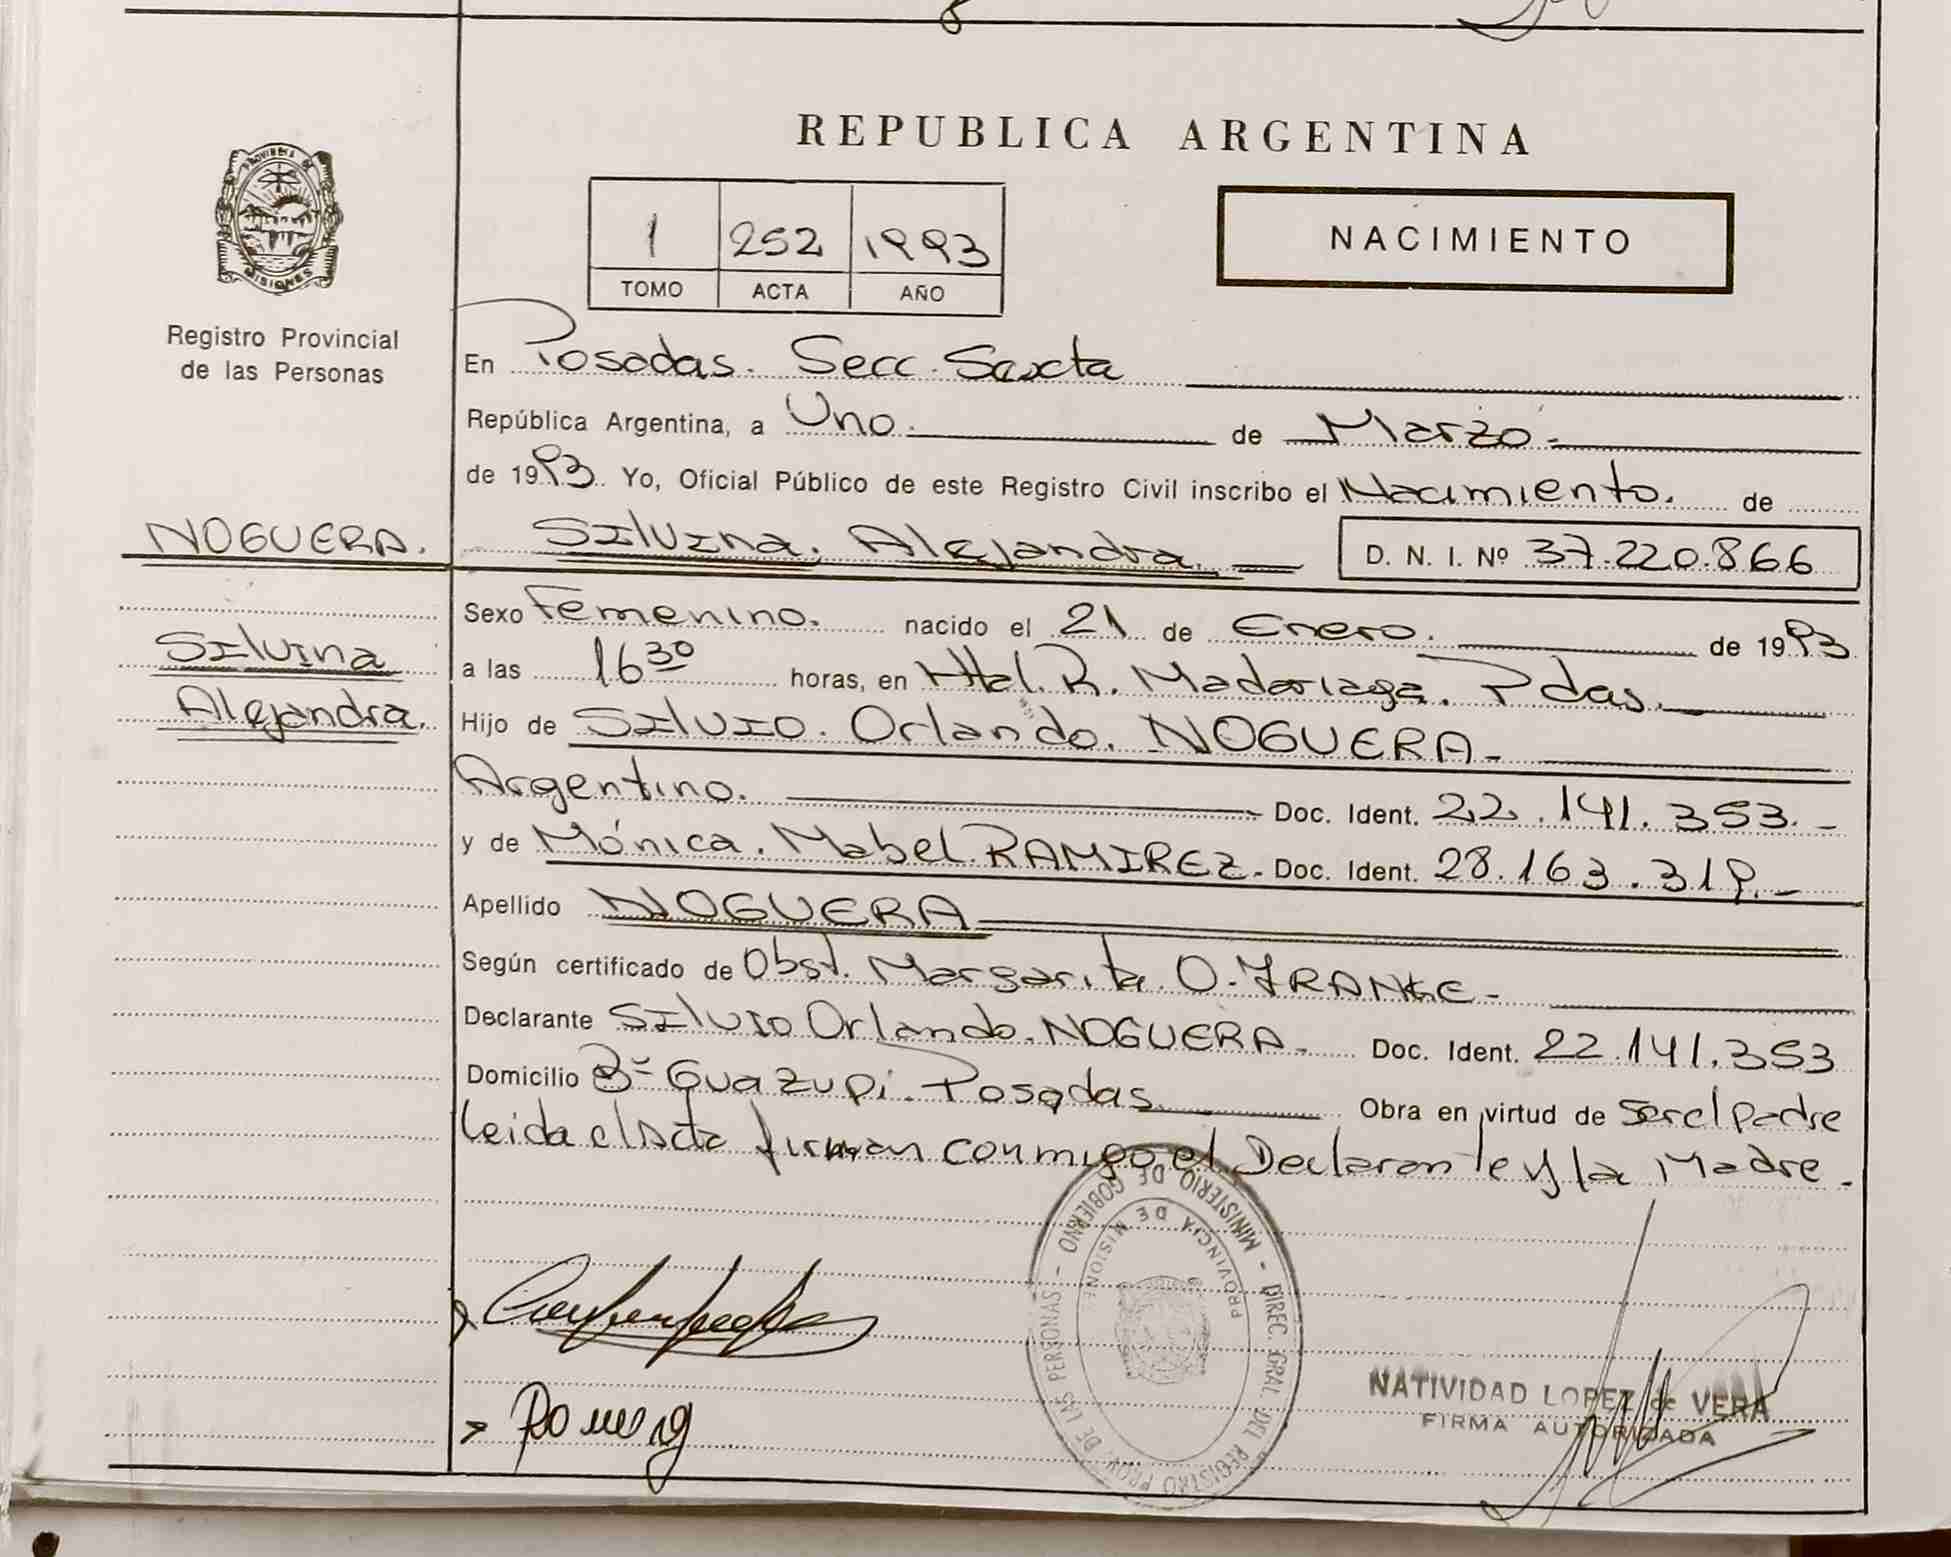 REPUBLICA ARGENTINA
PROVINCIA DE
MISIONES
Registro Provincial
de las Personas
1 252 1993
TOMO ACTA AÑO
NACIMIENTO
En Posadas. Secc. Sexta
República Argentina, a Uno. de Marzo.-
de 1993. Yo, Oficial Público de este Registro Civil inscribo el Nacimiento. de
NOGUERA.
Silvina. Alejandra. D. N. I. Nº 37.220.866
Silvina
Alejandra.
Sexo Femenino. nacido el 21 de Enero. de 1993
a las 16 30 horas, en Htal. R. Madariaga. Pdas.
Hijo de Silvio. Orlando. NOGUERA-
Argentino. Doc. Ident. 22.141.353.-
y de Mónica. Mabel. RAMIREZ- Doc. Ident. 28.163.319.-
Apellido NOGUERA
Según certificado de Obst. Margarita O.
Declarante Silvio Orlando. NOGUERA- Doc. Ident. 22.141.353
Domicilio Bº Guazupi. Posadas Obra en virtud de Ser el padre
Leida el Acta firman conmigo el Declarante y la Madre.
MINISTERIO DE GOBIERNO - DIREC. GRAL DEL REGISTRO PROV. DE LAS PERSONAS -
PROVINCIA DE MISIONES
NATIVIDAD LOPEZ de VERA
FIRMA AUTORIZADA